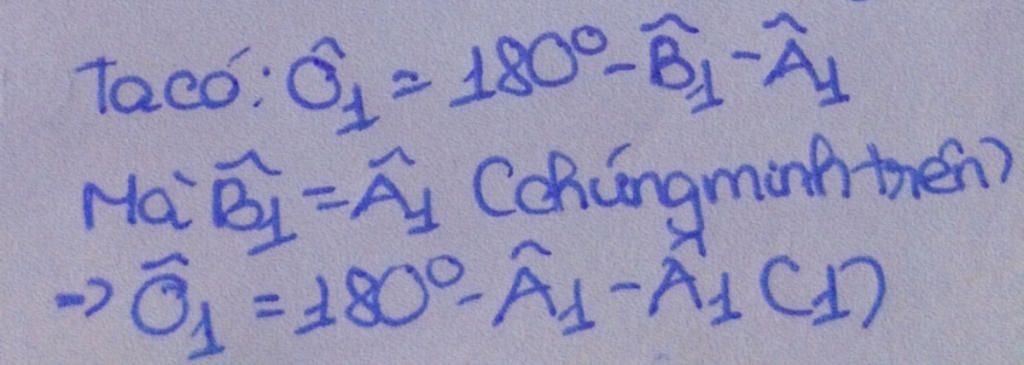 Ta có: Ô₁ = 180° - B̂₁ - Â₁
Mà B̂₁ = Â₁ (chứng minh trên)
=> Ô₁ = 180° - Â₁ - Â₁ (1)